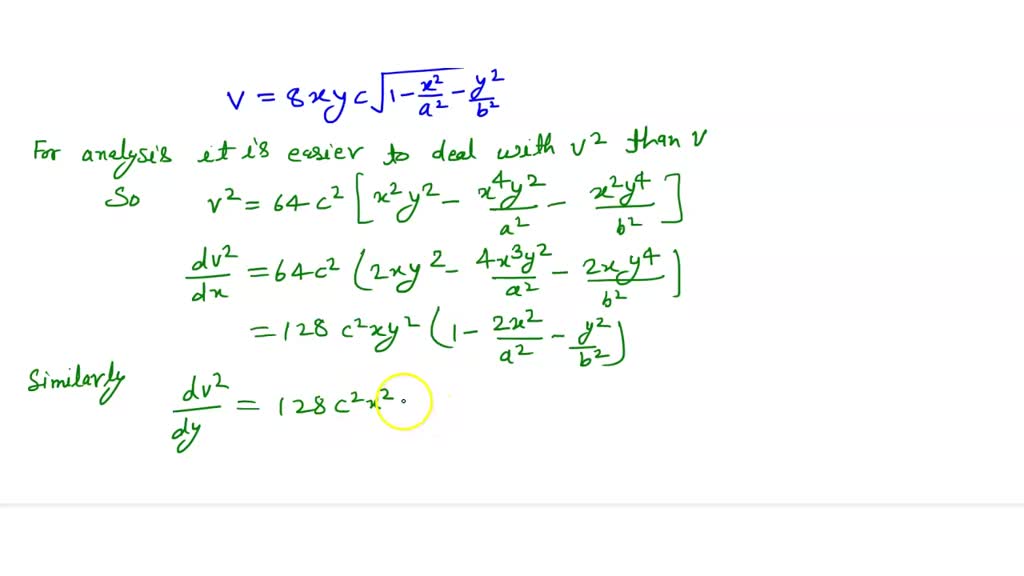 V = 8xyc√(1 - x²/a² - y²/b²)
For analysis it is easier to deal with v² than v
So v² = 64c² [x²y² - x⁴y²/a² - x²y⁴/b²]
dv²/dx = 64c² (2xy² - 4x³y²/a² - 2xy⁴/b²]
= 128 c²xy² (1 - 2x²/a² - y²/b²)
Similarly dv²/dy = 128c²x²